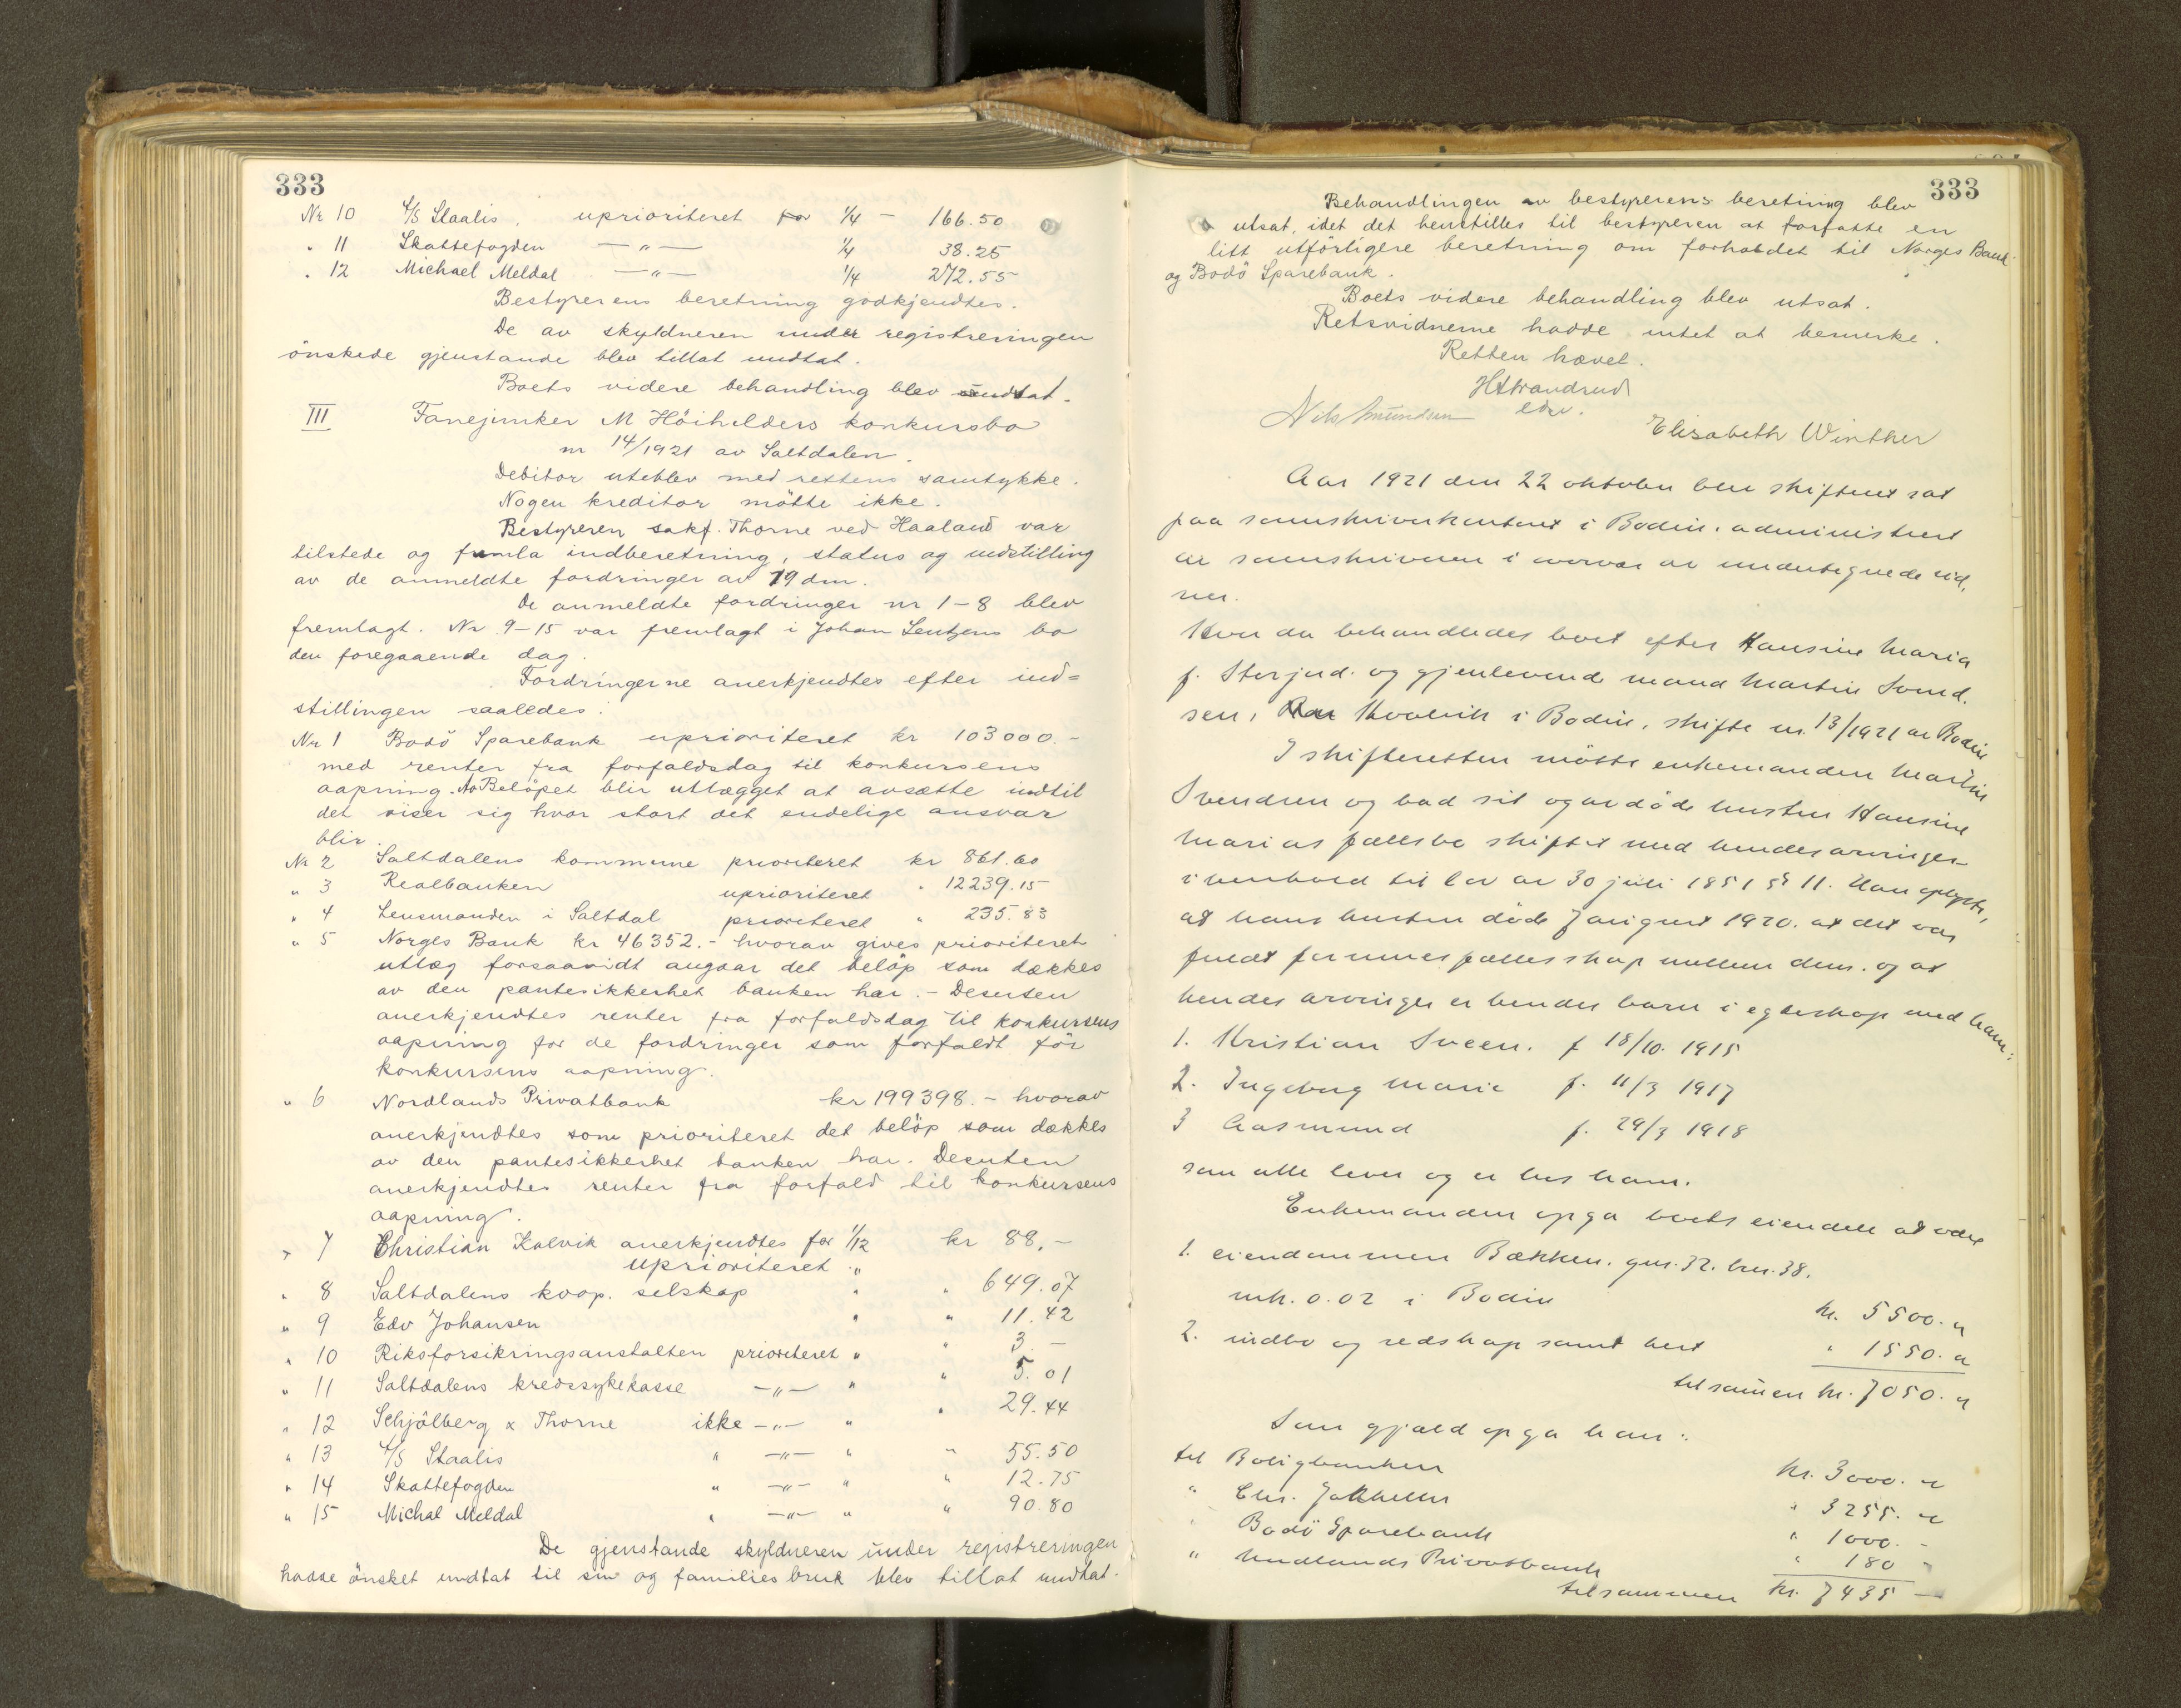 333
Nr 10 A/S Staalis, uprioriteret for 1/4 - 166.50
" 11 Skattefogden —"— 1/4 38.25
" 12 Michael Meldal —"— 1/4 272.55
Bestyrerens beretning godkjendtes.
De av skyldneren under registreringen
önskede gjenstande blev tillat undtat.
Boets videre behandling blev utsat.
III Fanejunker M Höihilders konkursbo
nr 14/1921 av Saltdalen.
Debitor uteblev med rettens samtykke.
Nogen kreditor mötte ikke.
Bestyreren sakf. Thorne ved Haaland var
tilstede og fremla indberetning, status og indstilling
av de anmeldte fordringer av 19 dm.
De anmeldte fordringer nr 1-8 blev
fremlagt. Nr 9-15 var fremlagt i Johan Lentzens bo
den foregaaende dag.
Fordringerne anerkjendtes efter ind=
stillingen saaledes:
Nr 1 Bodö Sparebank uprioriteret kr 103000.-
med renter fra forfaldsdag til konkursens
aapning. Beløpet blir utlægget at avsætte indtil
det viser sig hvor stort det endelige ansvar
blir.
Nr 2 Saltdalens kommune prioriteret kr 861.60
" 3 Realbanken uprioriteret " 12239.15
" 4 Lensmanden i Saltdal prioriteret " 235.83
" 5 Norges Bank kr 46352.- hvorav gives prioriteret
utlæg forsaavidt angaar det belöp som dækkes
av den pantesikkerhet banken har. - Desuten
anerkjendtes renter fra forfaldsdag til konkursens
aapning for de fordringer som forfaldt för
konkursens aapning.
" 6 Nordlands Privatbank kr 199398.- hvorav
anerkjendtes som prioriteret det belöp som dækkes
av den pantesikkerhet banken har. Desuten
anerkjendtes renter fra forfald til konkursens
aapning.
" 7 Christian Kalvik anerkjendtes for 1/12 kr 88,-
uprioriteret "
" 8 Saltdalens koop. selskap " " 649.07
" 9 Edv Johansen " " 11.42
" 10 Riksforsikringsanstalten prioriteret " " 3.-
" 11 Saltdalens kredssykekasse —"— " " 5.01
" 12 Schjölberg & Thorne ikke —"— " " 29.44
" 13 A/S Staalis " —"— " " 55.50
" 14 Skattefogden " —"— " " 12.75
" 15 Michal Meldal " —"— " " 90.80
De gjenstande skyldneren under registreringen
hadde önsket undtat til sin og families bruk blev tillat undtat.
333
Behandlingen av bestyrerens beretning blev
utsat, idet det henstilles til bestyreren at forfatte en
litt utförligere beretning om forholdet til Norges Bank
og Bodö Sparebank.
Boets videre behandling blev utsat.
Retsvidnerne hadde intet at bemerke.
Retten hævet.
H Strandrud
edv.
Nils Amundsen
Elisabeth Winther
Aar 1921 den 22 oktober blev skifteret sat
paa sorenskriverkontoret i Bodin, administrert
av sorenskriveren i overvær av undertegnede vid,
ner.
Hvor da behandledes boet efter Hansine Maria
f. Storjord. og gjenlevende mand Martin Svend,
sen, Kvalvik i Bodin, skifte nr. 13/1921 av Bodin
I skifteretten mötte enkemanden Martin
Svendsen og bad sit og avdöde hustru Hansine
Marias fællesbo skiftet med hendes arvinger
i henhold til lov av 30 juli 1851 § 11. Han oplyste,
at hans hustru döde 7 august 1920. at det var
fuldt formuesfællesskap mellem dem. og at
hendes arvinger er hendes barn i egteskap med ham:
1. Kristian Sveen. f 18/10. 1915
2. Ingeborg Marie f. 11/3 1917
3 Aasmund f. 29/3 1918
som alle lever og er hos ham.
Enkemanden opga boets eiendele at være
1. eiendommen Bækken. gnr. 32. bnr. 38.
mk. 0.02 i Bodin kr. 5500. "
2. indbo og redskap samt hest " 1550. "
tilsammen kr. 7050. "
Som gjæld opga han:
til Boligbanken kr. 3000. "
" Chr. Jakhelln " 3255. "
" Bodö Sparebank " 1000. -
" Nordlands Privatbank " 180 "
tilsammen kr. 7435 —